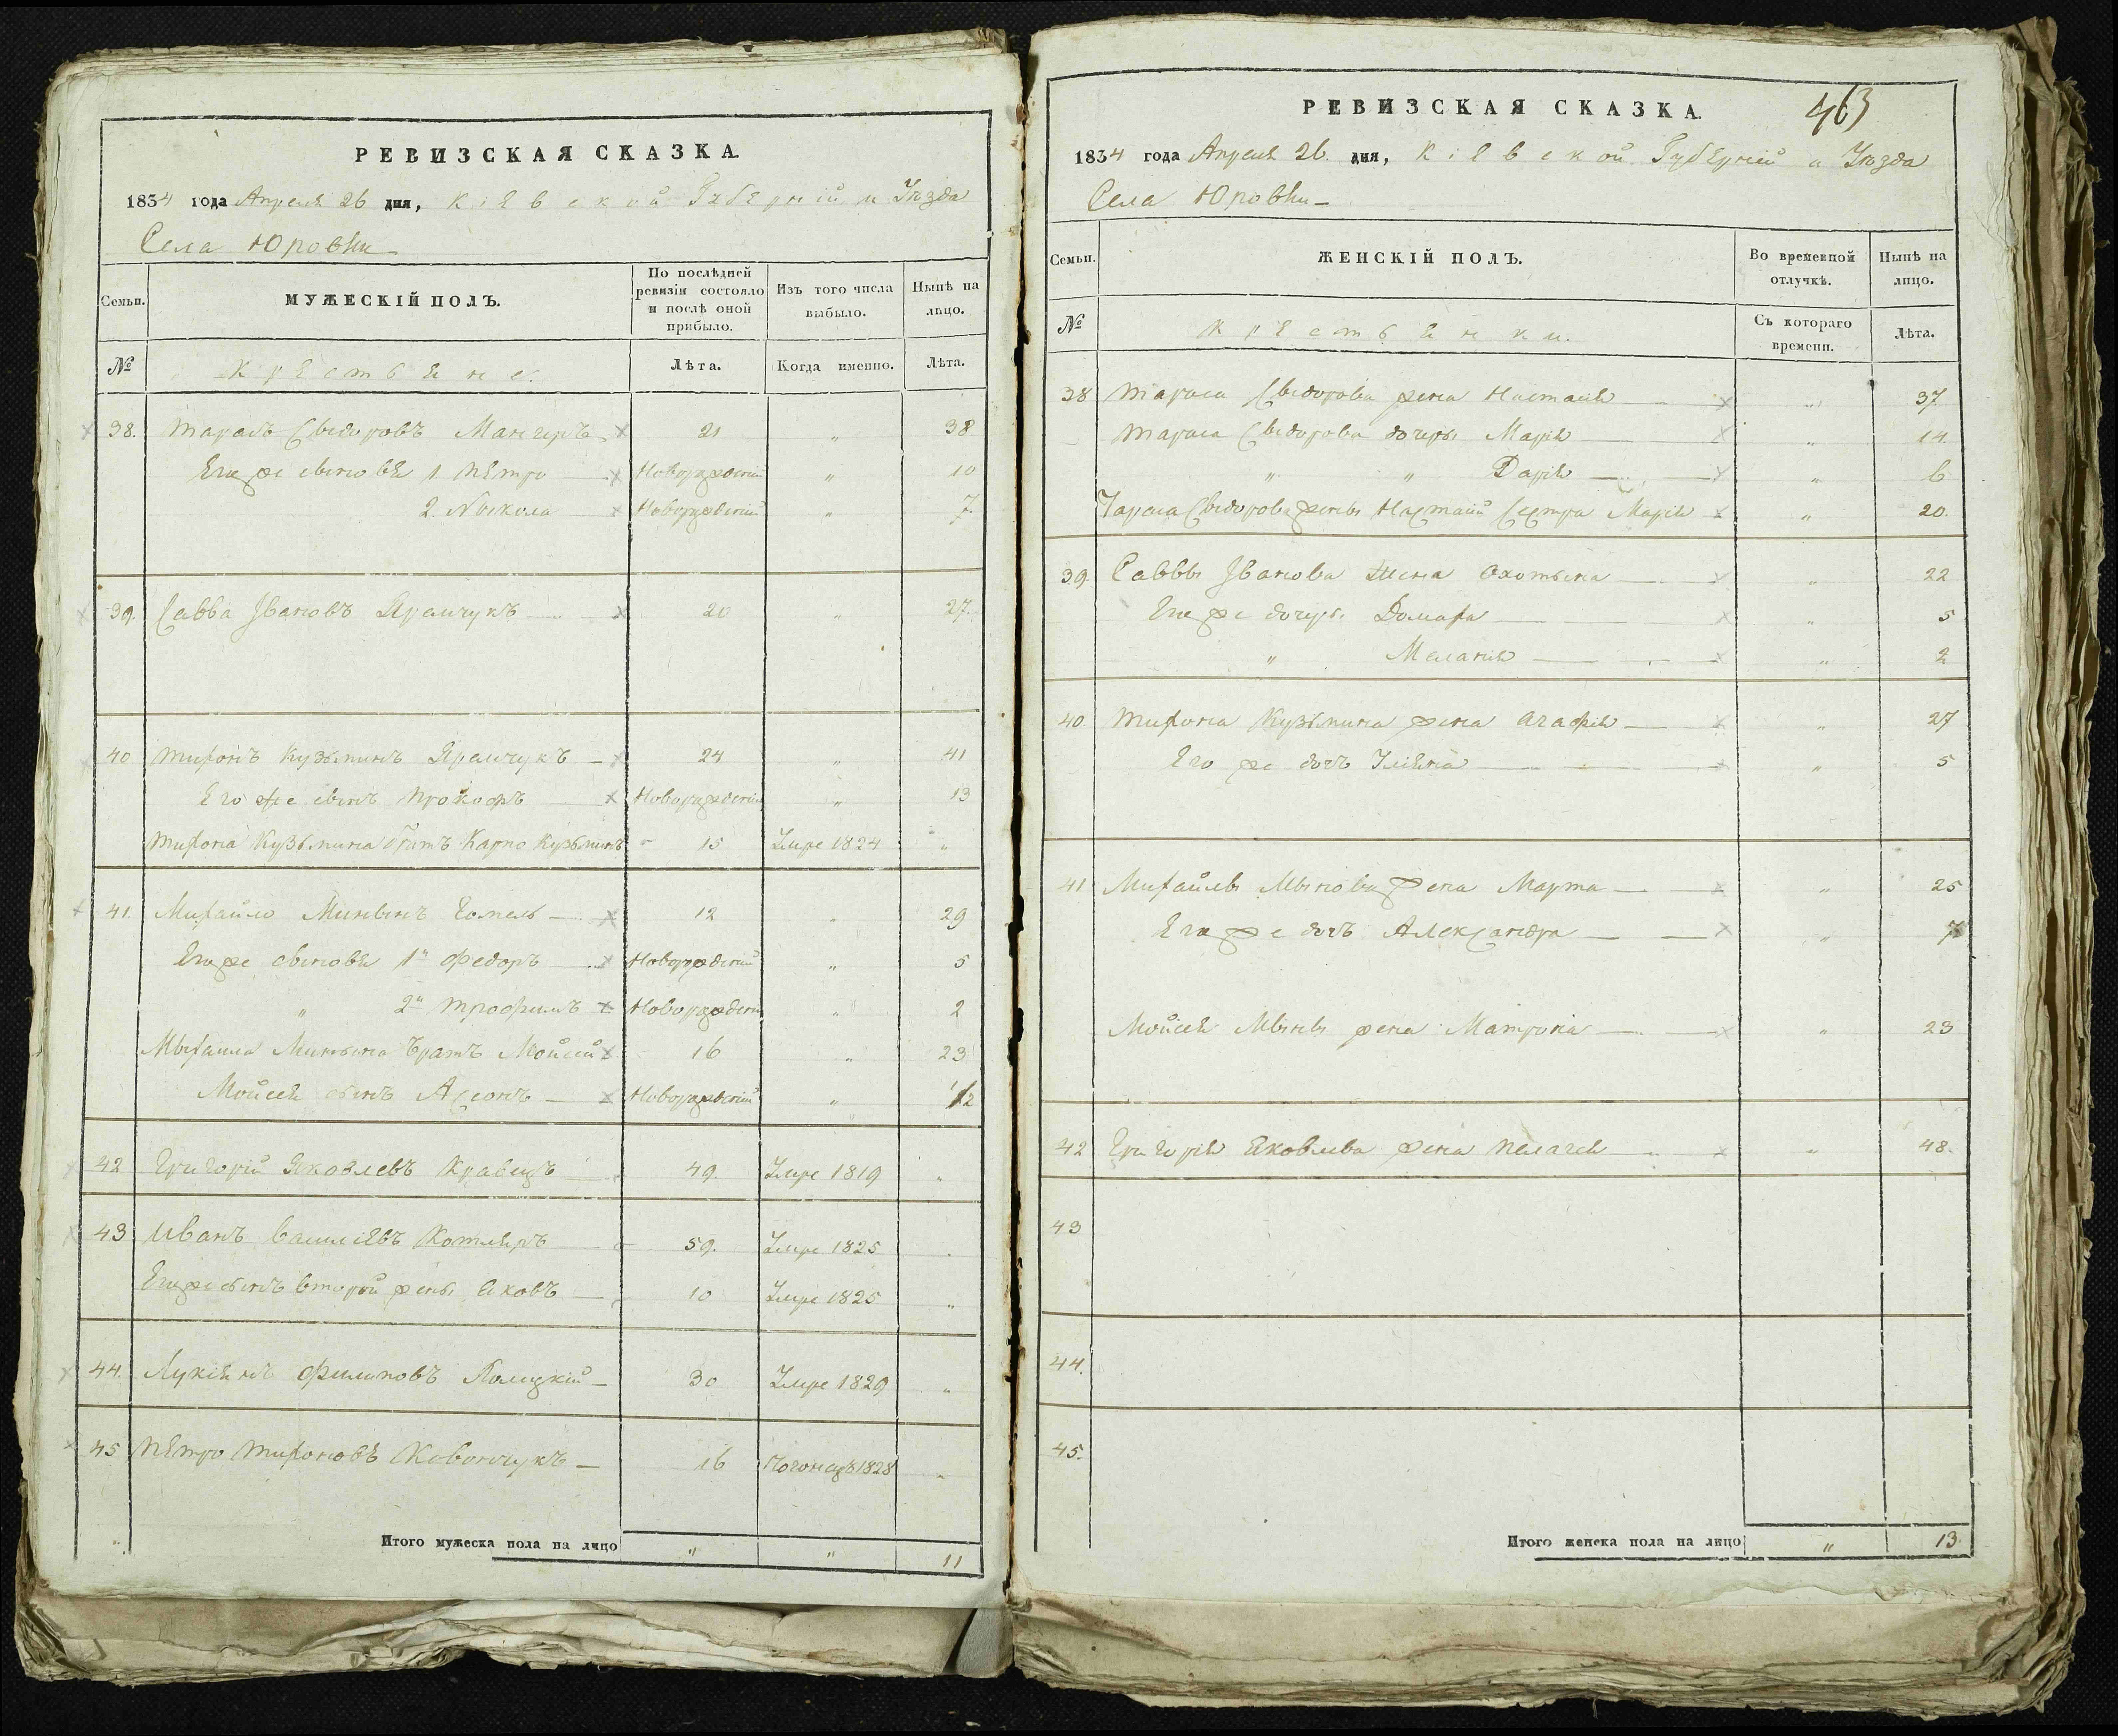 РЕВИЗСКАЯ СКАЗКА.
1834 года Апреля 26 дня, Кіевской Губерніи и Уѣзда
Села Юровки
Семьи.
МУЖЕСКІЙ ПОЛЪ.
По послѣдней ревизіи состояло и послѣ оной прибыло.
Изъ того числа выбыло.
Нынѣ на лицо.
№
Крестьяне.
Лѣта.
Когда именно.
Лѣта.
38. Тарасъ Свидоровъ 21 " 38
Его же сыновья 1 Петро Новорожденный " 10
2 Никола Новорожденный " 7
39. Савва Ивановъ Ярамчукъ 20 " 27.
40 Тихонъ Кузьминъ Ярамчукъ 24 " 41
Его же сынъ Прокофъ Новорожденный " 13
Тихона Кузьмина братъ Карпо Кузьминъ 15 Умре 1824 "
41. Михайло 12 " 29
Его же сыновья 1й Федоръ Новорожденный " 5
" 2й Трофимъ Новорожденный " 2
братъ Мойсей 16 " 23
Мойсея сынъ Новорожденный " 1/2
42 Григорій Яковлевъ Кравецъ 49. Умре 1819 "
43 Иванъ Василіевъ Котляръ 59. Умре 1825 "
Его же сынъ второй жены Яковъ 10 Умре 1825 "
44. Лукіянъ Филиповъ 30 Умре 1829 "
45 Петро Тихоновъ 16 1828 "
Итого мужеска пола на лицо " " 11
463
РЕВИЗСКАЯ СКАЗКА.
1834 года Апреля 26. дня, Кіевской Губерніи и Уѣзда
Села Юровки
Семьи.
ЖЕНСКІЙ ПОЛЪ.
Во временной отлучкѣ.
Нынѣ на лицо.
№
Крестьянки.
Съ котораго времени.
Лѣта.
38 Тараса Свидорова жена Настасія " 37
Тараса Свидорова дочери Марія " 14.
" " Дарія " 6
Тараса Свидорова жены Настасіи Сестра Марія " 20.
39. Саввы Иванова жена " 22
Его же дочери Домаха " 5
" Меланія " 2
40. Тихона Кузьмина жена Агафія " 27
Его же дочь Уліяна " 5
41 Михайлы жена Марта " 25
Его же дочь Александра "
Мойсея жена Матрона " 23
42 Григорія Яковлева жена Пелагея " 48.
43
44.
45.
Итого женска пола на лицо " 13